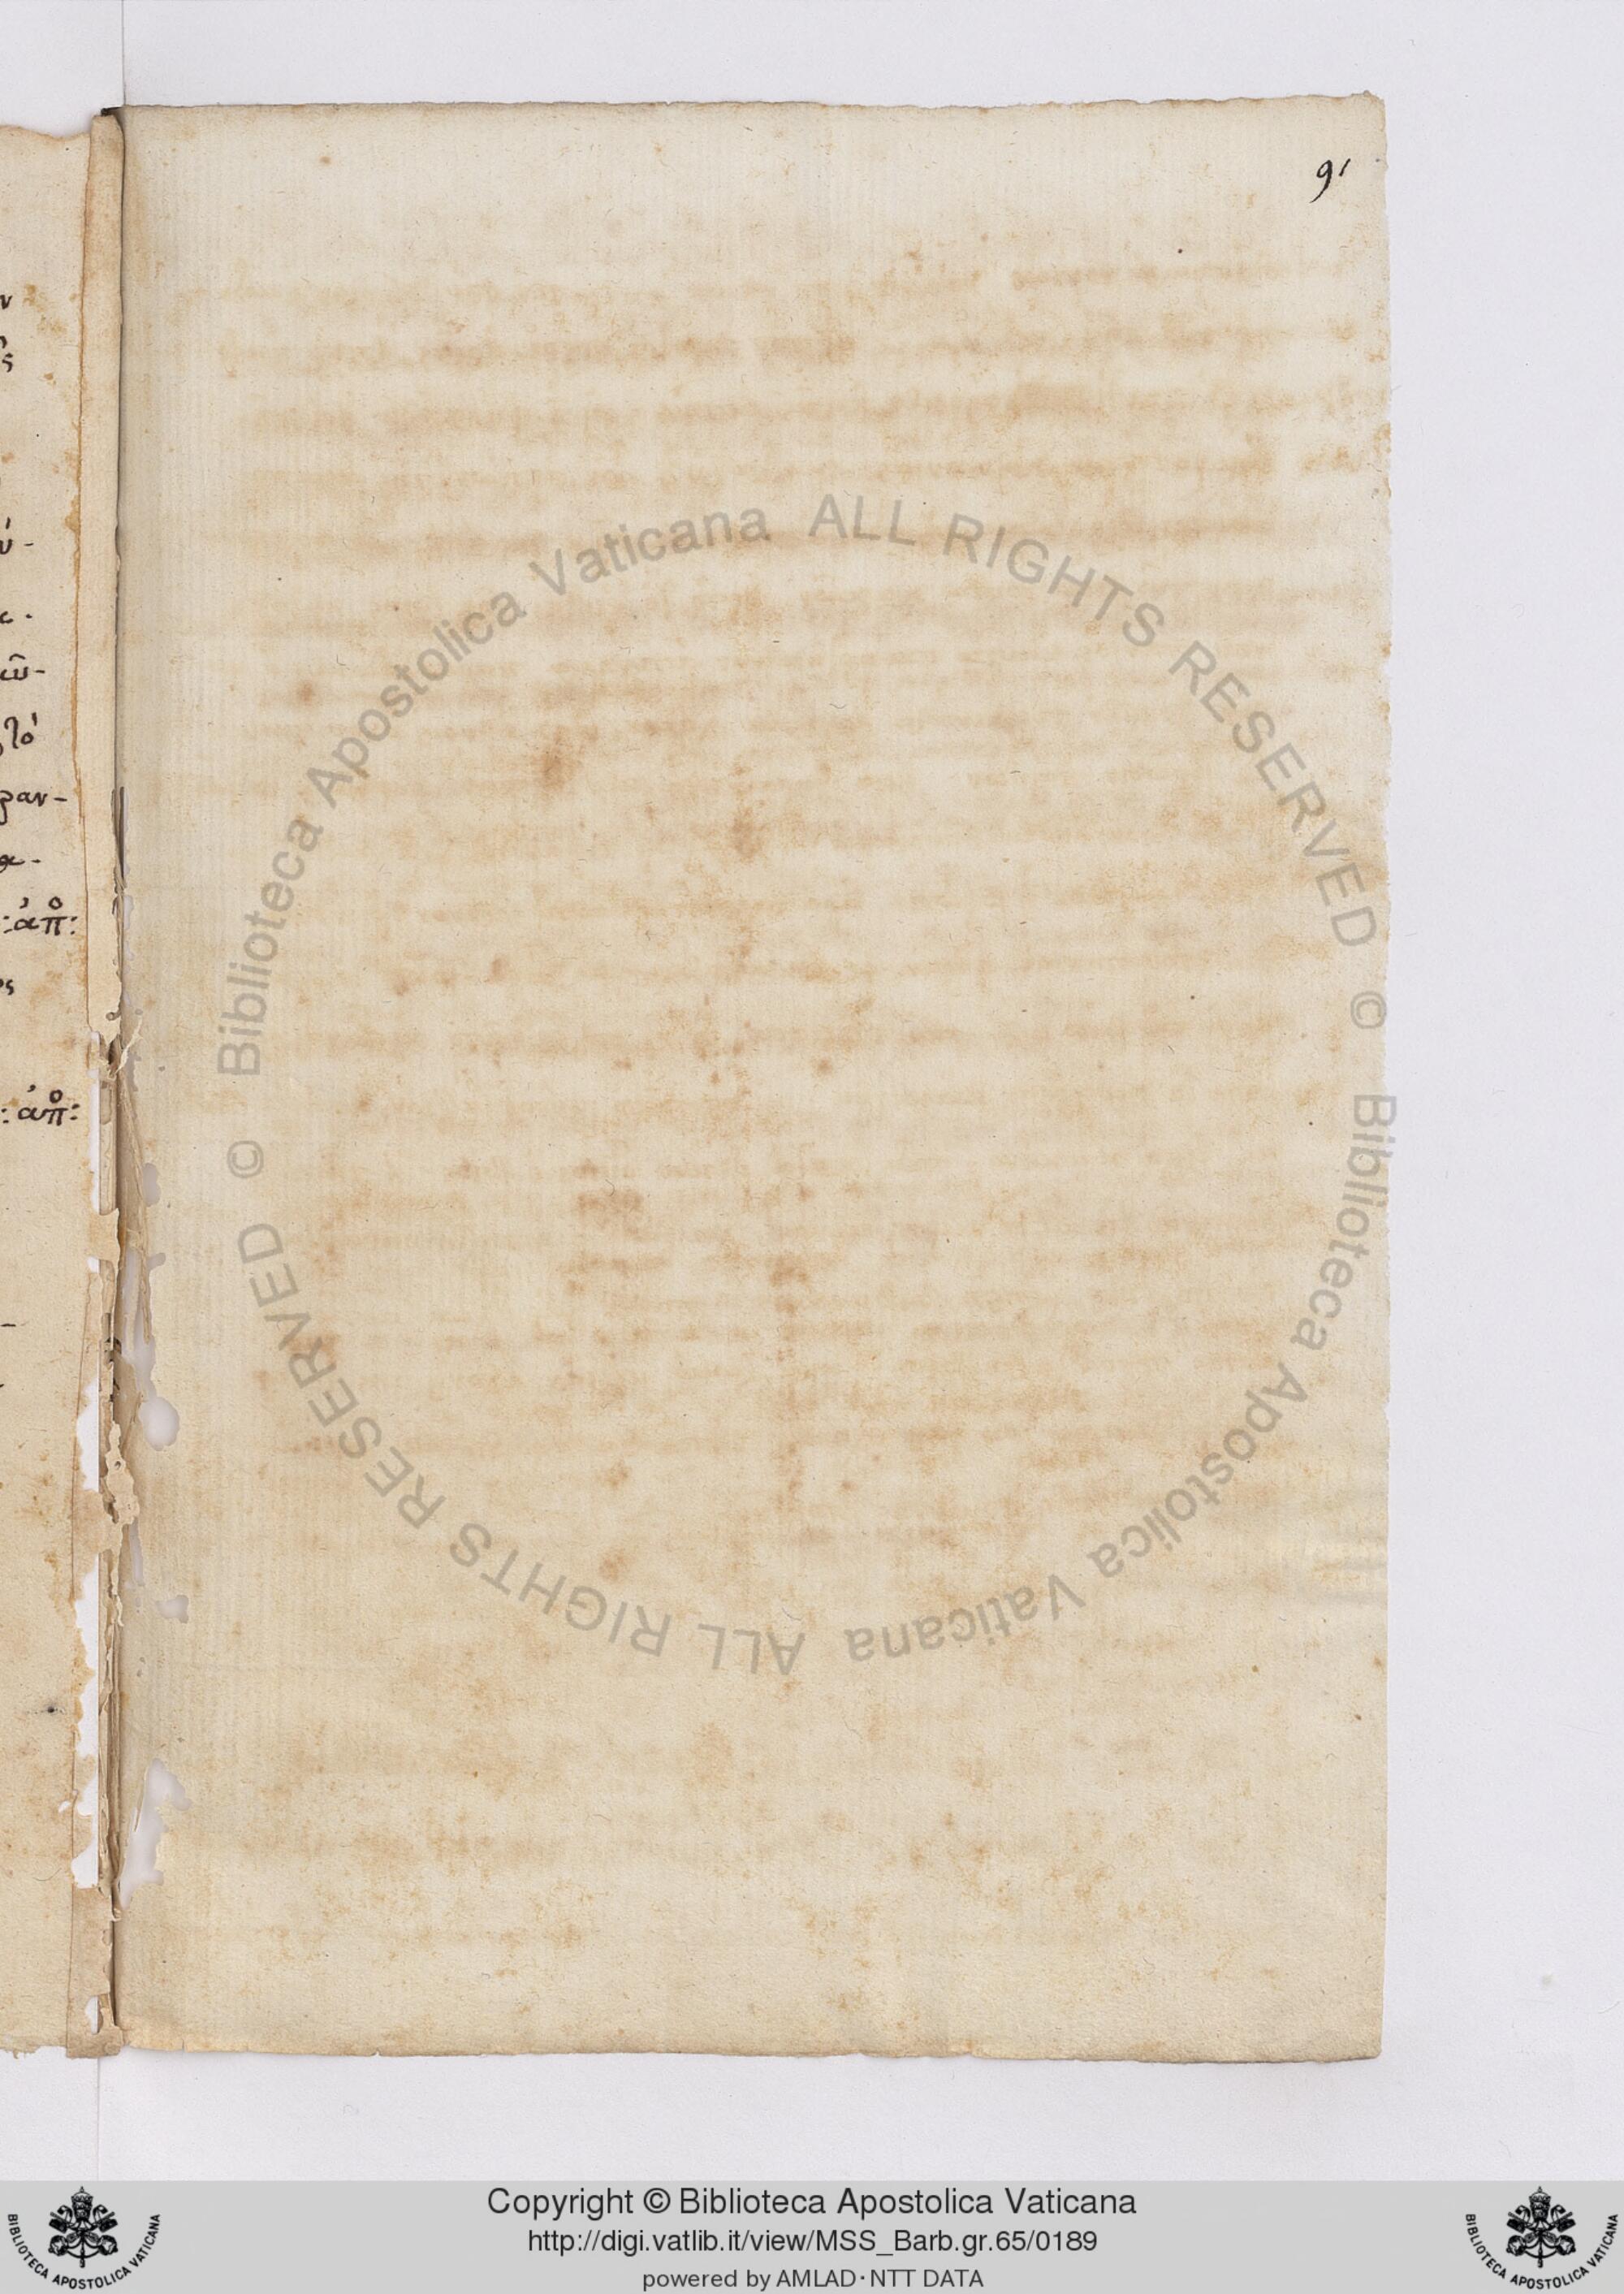 91
ν
ς
ύ-
ῶ-
τό
ραν-
α-
:ἀπο:
ος
:ἀπο:
© Biblioteca Apostolica Vaticana ALL RIGHTS RESERVED
© Biblioteca Apostolica Vaticana ALL RIGHTS RESERVED
Copyright © Biblioteca Apostolica Vaticana
http://digi.vatlib.it/view/MSS_Barb.gr.65/0189
powered by AMLAD·NTT DATA
BIBLIOTECA APOSTOLICA VATICANA
BIBLIOTECA APOSTOLICA VATICANA